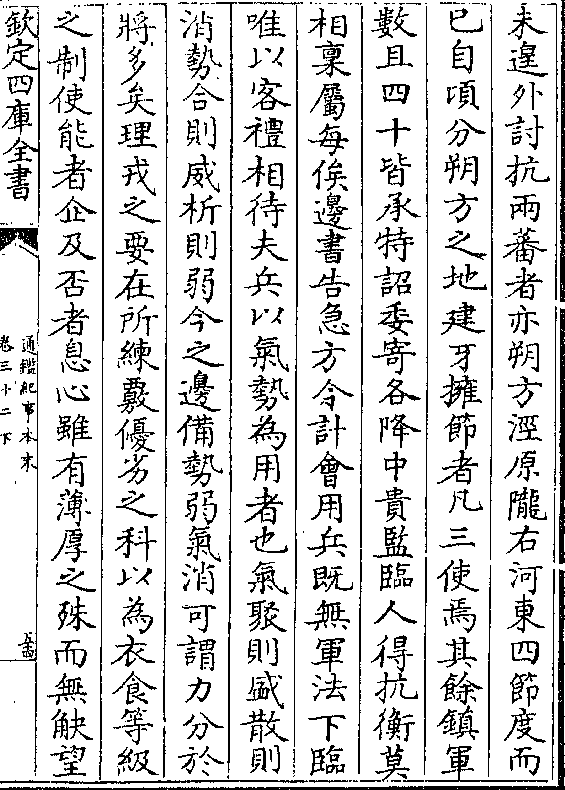 未遑外討抗兩蕃者亦朔方涇原隴右河東四節度而
已自頃分朔方之地建牙擁節者凡三使焉其餘鎮軍
數且四十皆承特詔委寄各降中貴監臨人得抗衡莫
相稟屬每俟邊書告急方令計會用兵既無軍法下臨
唯以客禮相待夫兵以氣勢為用者也氣聚則盛散則
消勢合則威析則弱今之邊備勢弱氣消可謂力分於
將多矣理戎之要在所練覈優劣之科以為衣食等級
之制使能者企及否者息心雖有薄厚之殊而無觖望
欽定四庫全書
通鑑紀事本末
卷三十二下